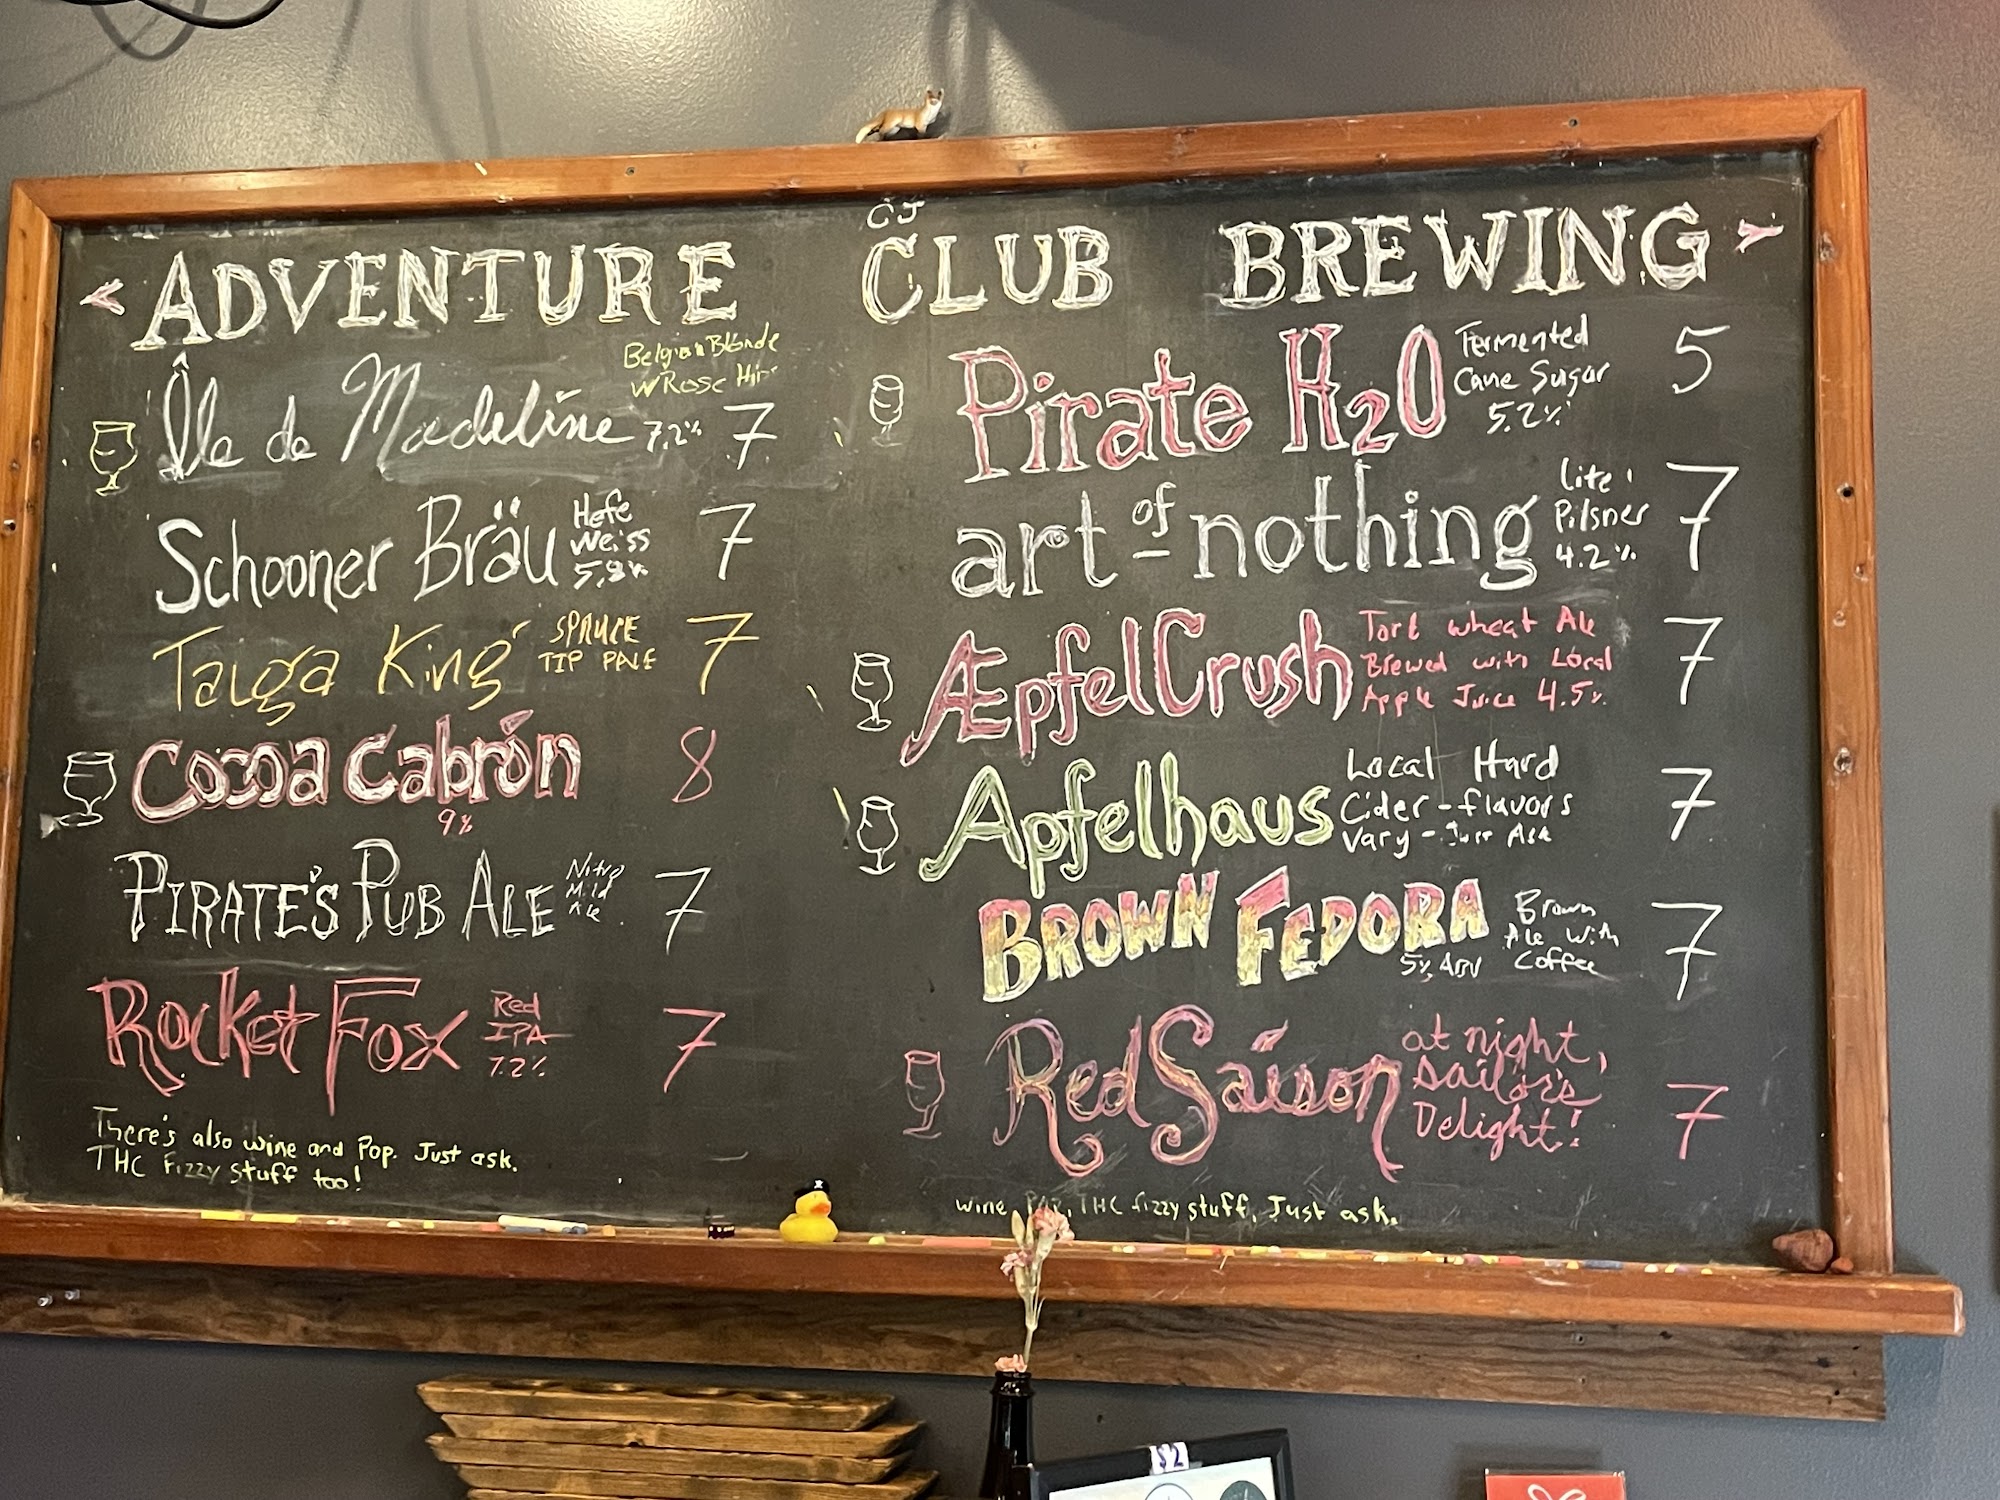 CJ
ADVENTURE CLUB BREWING
Île de Madeline
Belgian Blonde
w Rose Hips
7.2%
7
Schooner Bräu
Hefe
Weiss
5.8%
7
Taiga King
SPRUCE
TIP PALE
7
Cocoa Cabrón
9%
8
PIRATE'S PUB ALE
Nitro
Mild
Ale
7
Rocket Fox
Red
IPA
7.2%
7
There's also wine and Pop. Just ask.
THC Fizzy stuff too!
Pirate H2O
Fermented
Cane Sugar
5.2%
5
art of nothing
Lite
Pilsner
4.2%
7
ÆpfelCrush
Tart wheat Ale
Brewed with Local
Apple Juice 4.5%
7
Apfelhaus
Local Hard
Cider - flavors
Vary - Just Ask
7
BROWN FEDORA
5% ABV
Brown
Ale with
Coffee
7
Red Saison
at night,
Sailor's
Delight!
7
wine, THC fizzy stuff, Just ask.
$2